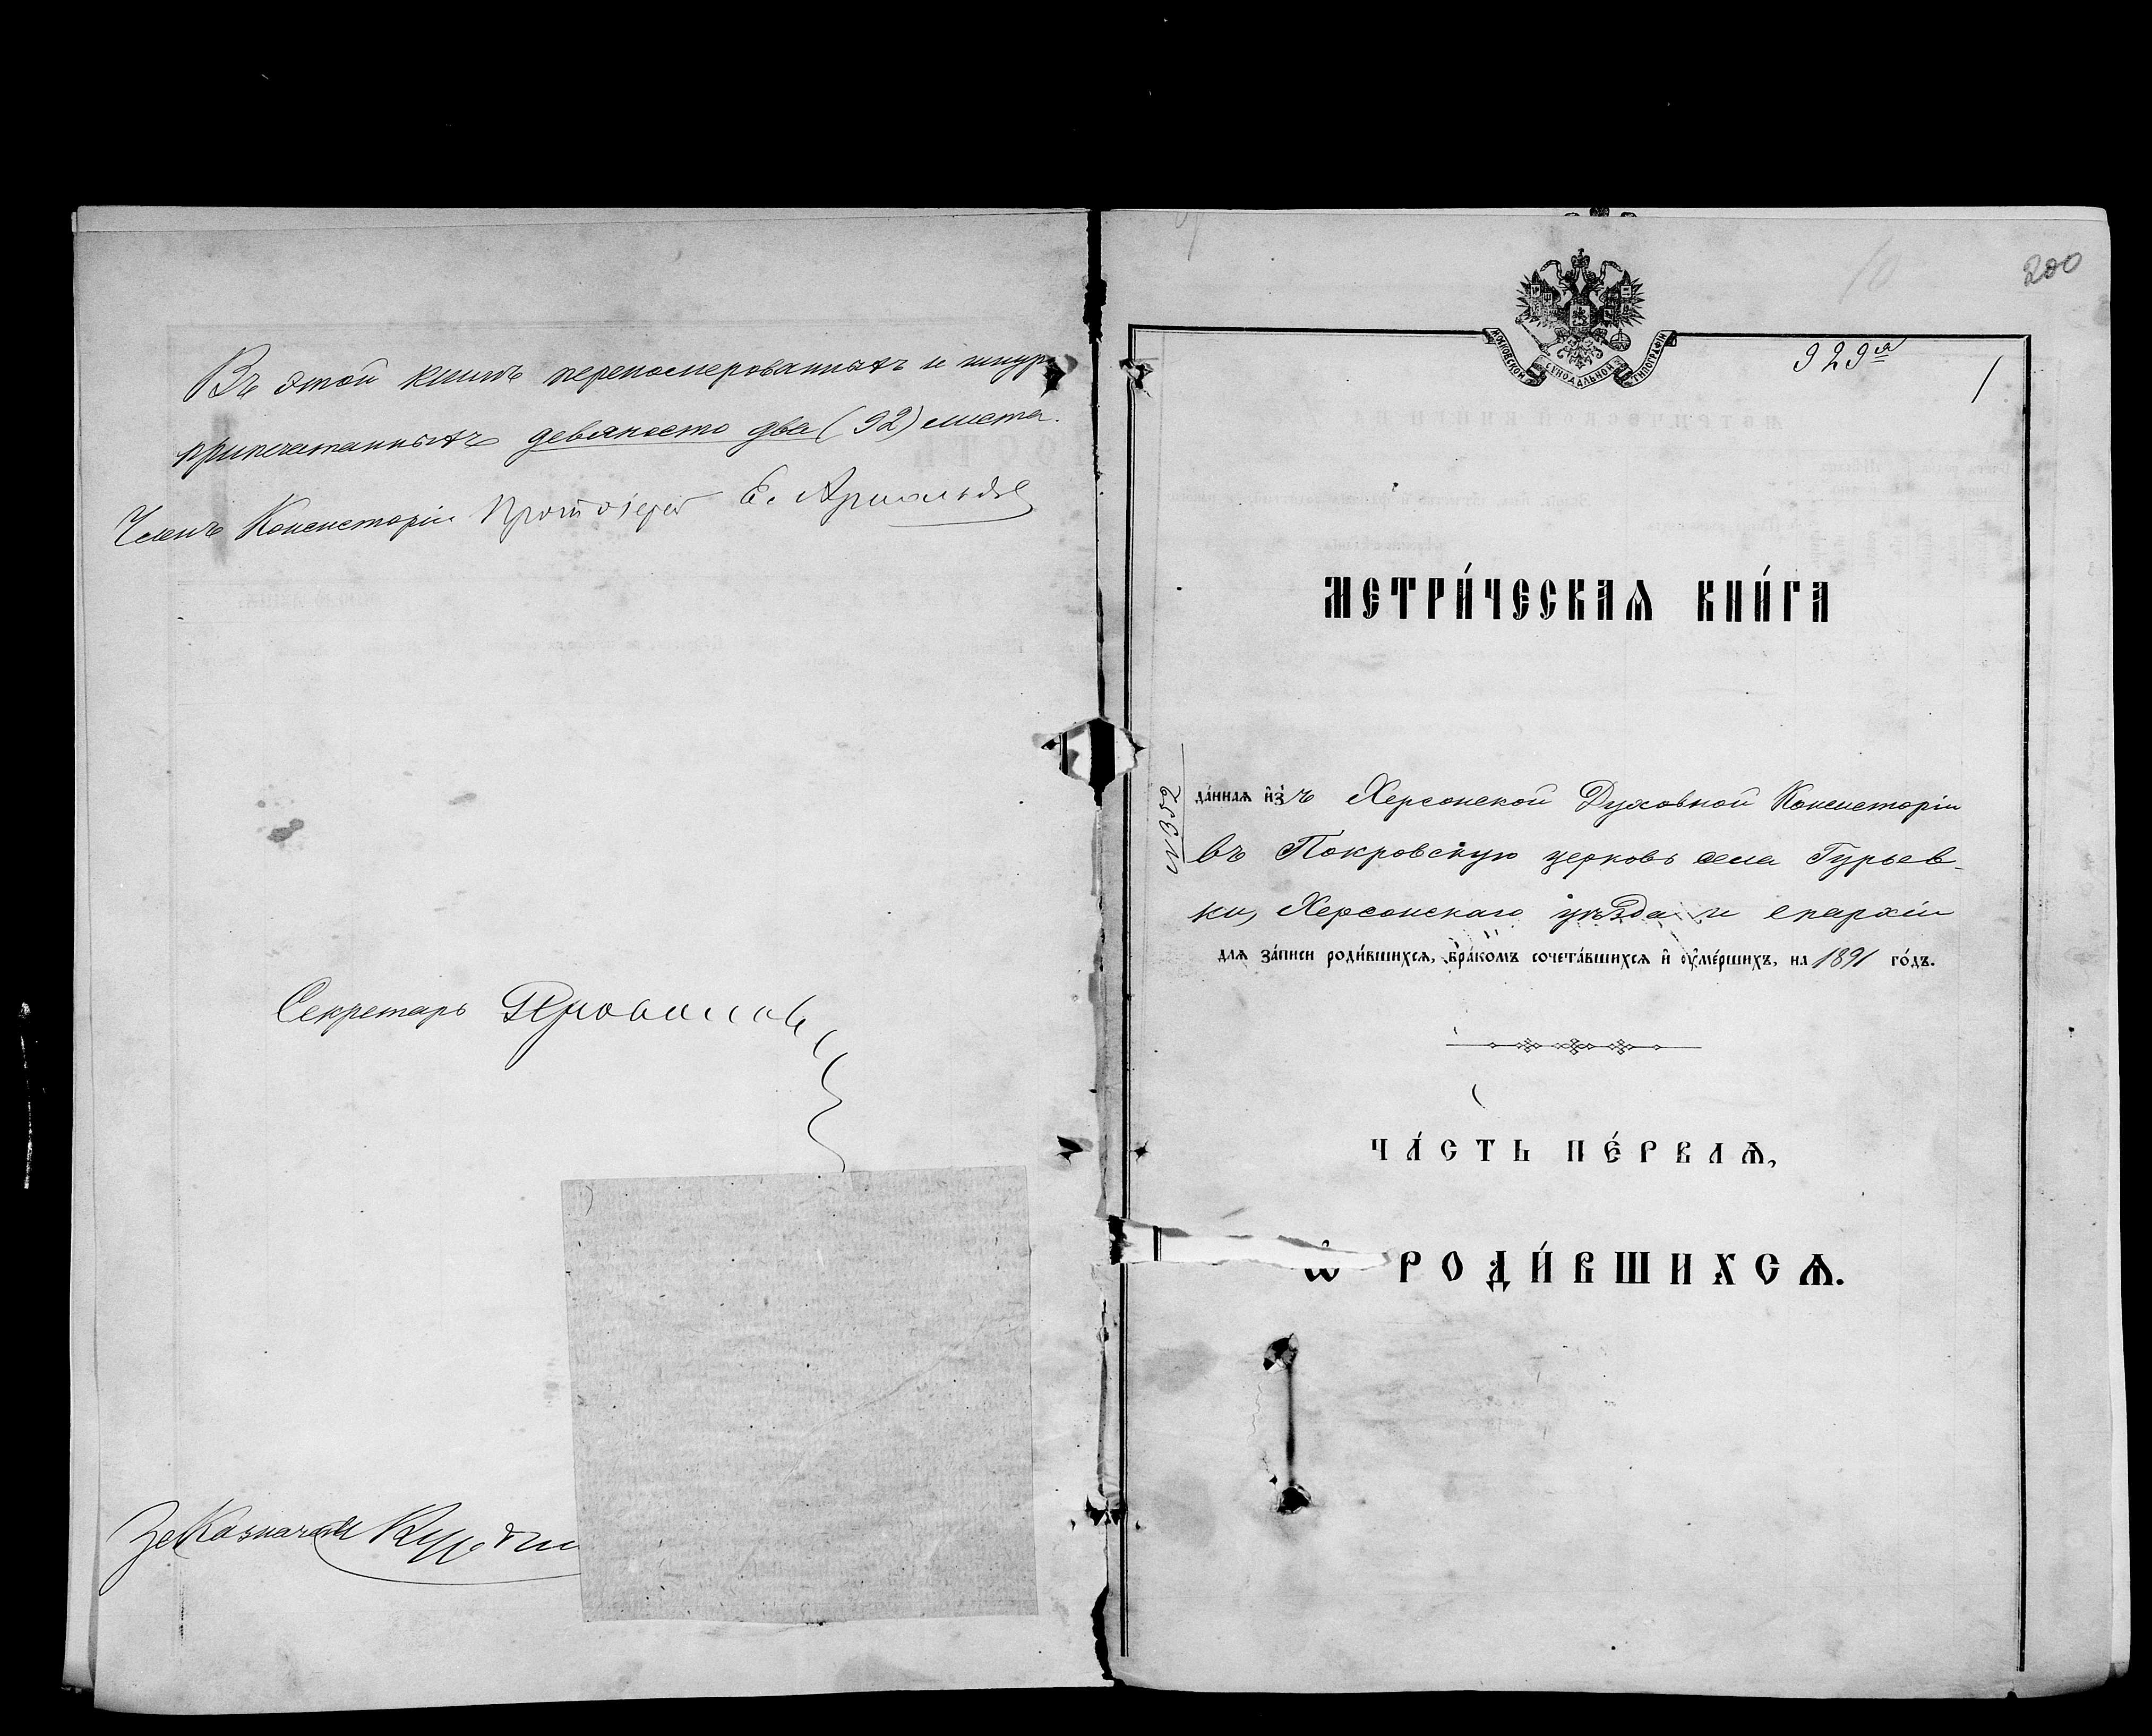 Въ этой книгѣ перенумерованныхъ и шнуро
припечатанныхъ девяносто два (92) листа.
Членъ Консисторіи Протоіерей Е. Арнольдъ
Секретарь
Казначея
200
929
1
МОСКОВСКОЙ СѴНОДАЛЬНОЙ ТИПОГРАФІИ
МЕТРИ́ЧЕСКАѦ КНИ́ГА
№ 352
да́ннаѧ и҆зъ Херсонской Духовной Консисторіи
въ Покровскую церковь села Гурьев-
ки, Херсонскаго уѣзда и епархіи
длѧ за́писи роди́вшихсѧ, бра́комъ сочета́вшихсѧ и҆ ᲂу҆ме́ршихъ, на 1891 го́дъ.
ЧА́СТЬ ПЕ́РВАѦ,
Ѡ҆ РОДИ́ВШИХСѦ.